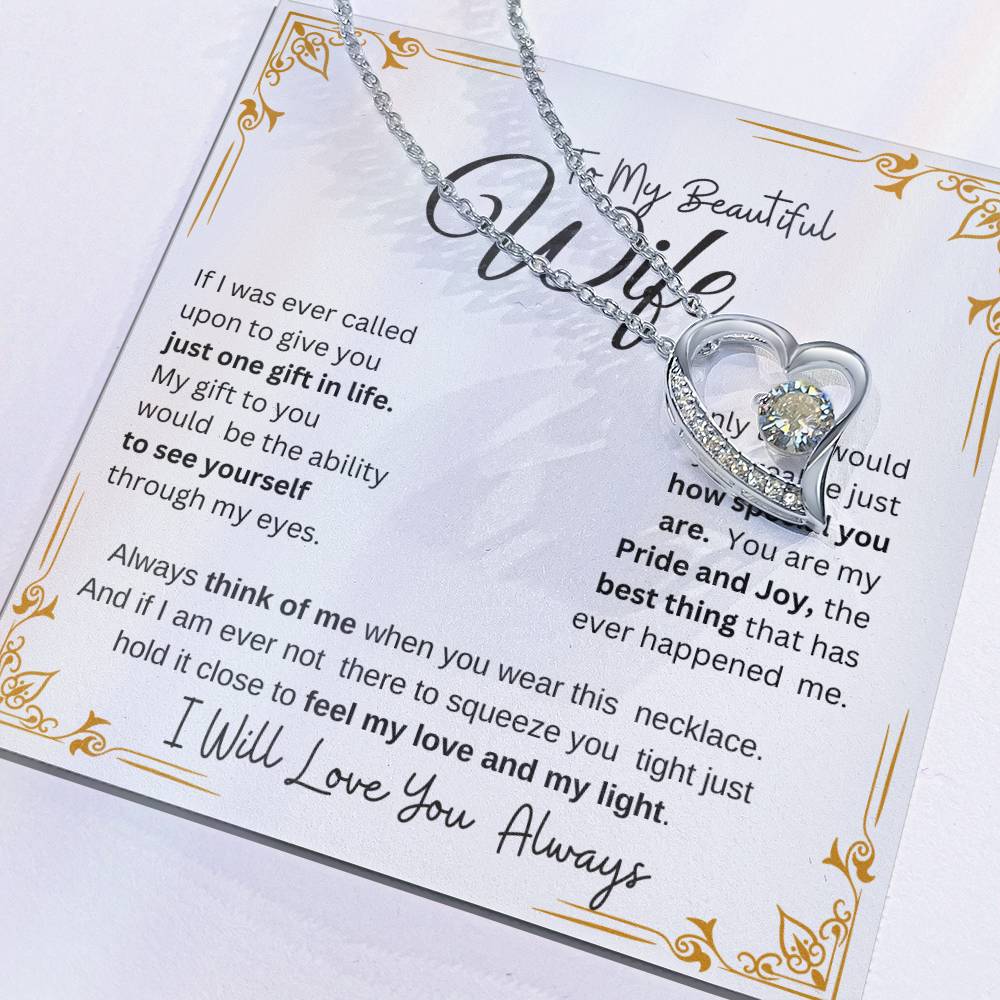 To My Beautiful
Wife
If I was ever called
upon to give you
just one gift in life.
My gift to you
would be the ability
to see yourself
through my eyes.
would
just
how special you
are. You are my
Pride and Joy, the
best thing that has
ever happened me.
Always think of me when you wear this necklace.
And if I am ever not there to squeeze you tight just
hold it close to feel my love and my light.
I Will Love You Always